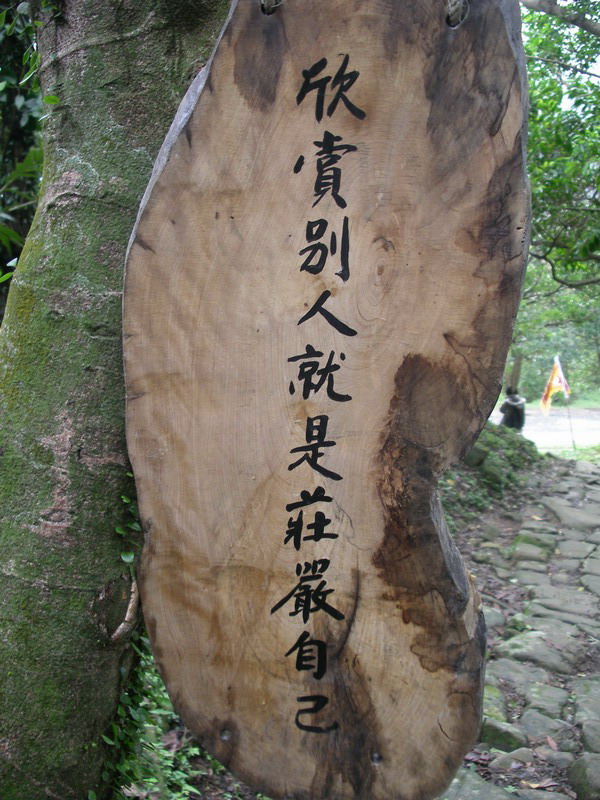 欣賞別人就是莊嚴自己